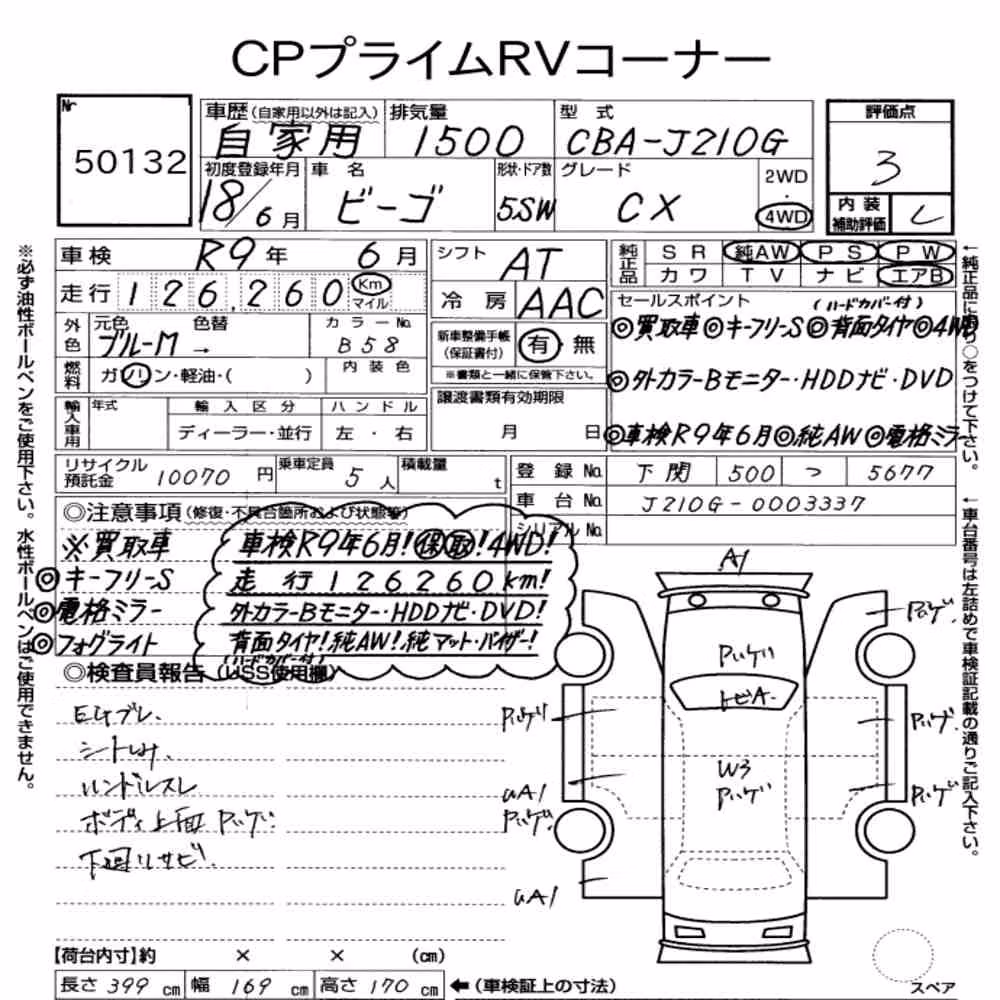 CPプライムRVコーナー
Nr
50132
車歴(自家用以外は記入)
自家用
排気量
1500
型式
CBA-J210G
評価点
3
初度登録年月
18/6月
車名
ビーゴ
形状・ドア数
5SW
グレード
CX
2WD
・
4WD
内装
補助評価
車検 R9年 6月
走行 126,260 Km マイル
シフト
AT
冷房 AAC
純正品
SR 純AW PS PW
カワ TV ナビ エアB
外色
元色 色替
ブルーM →
カラーNo.
B58
燃料
ガソリン・軽油・( )
内装色
新車整備手帳
(保証書付)
有・無
※書類と一緒に保管下さい。
セールスポイント
(ハードカバー付)
◎買取車◎キーフリーS◎背面タイヤ◎4WD
◎外カラーBモニター・HDDナビ・DVD
◎車検R9年6月◎純AW◎電格ミラー
輸入車用
年式
輸入区分
ディーラー・並行
ハンドル
左・右
譲渡書類有効期限
月 日
リサイクル
預託金
10070円
乗車定員
5人
積載量
t
登録No. 下関 500 つ 5677
車台No. J210G-0003337
シリアルNo.
◎注意事項(修復・不具合箇所および状態等)
※買取車 車検R9年6月!保取!4WD!
◎キーフリーS 走行126260km!
◎電格ミラー 外カラーBモニター・HDDナビ・DVD!
◎フォグライト 背面タイヤ!純AW!純マット・バイザー!
(ハードカバー付)
◎検査員報告(USS使用欄)
シートしみ.
ハンドルスレ
ボディ上面
下廻りサビ.
A1
トビA
W3
UA1
UA1
【荷台内寸】約 × × (cm)
長さ 399cm 幅 169cm 高さ 170cm ←(車検証上の寸法)
スペア
※必ず油性ボールペンをご使用下さい。水性ボールペンはご使用できません。
←純正品に限り○をつけて下さい。
←車台番号は左詰めで車検証記載の通りご記入下さい。